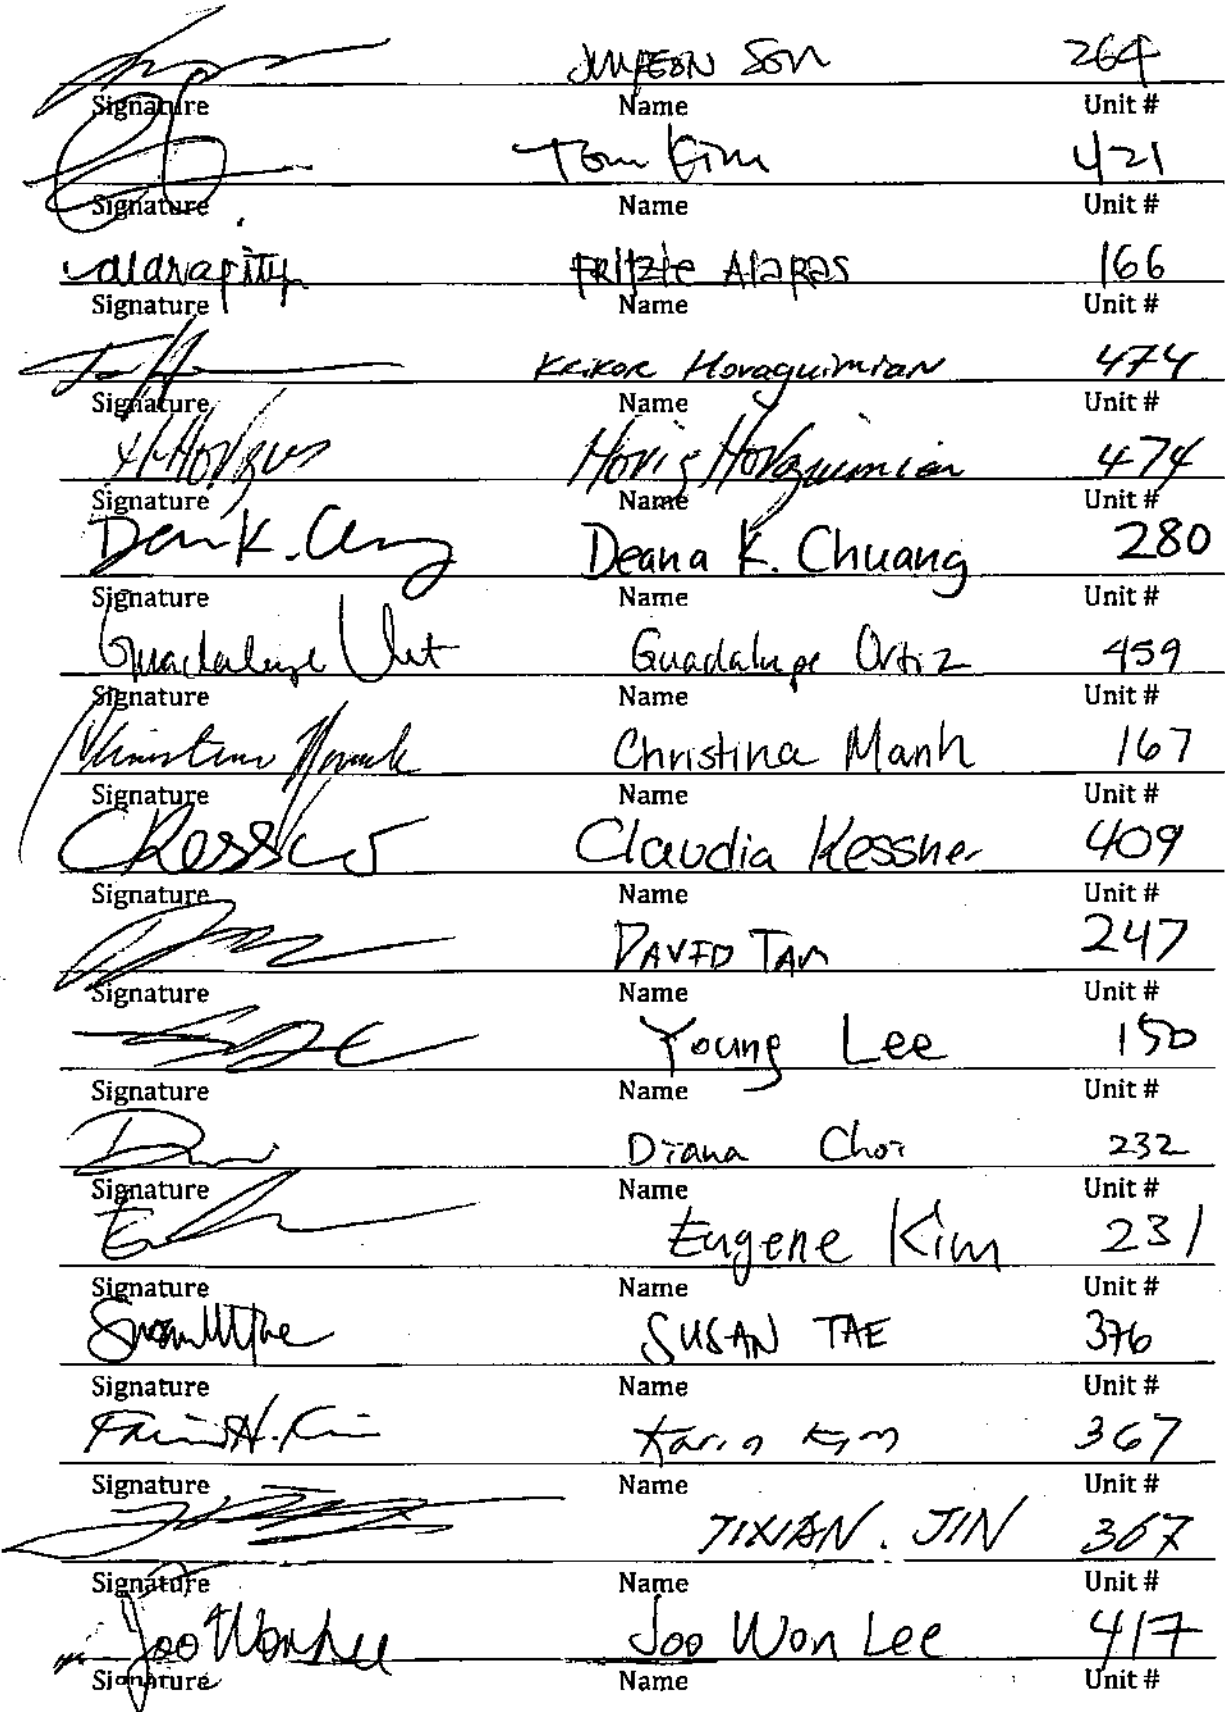 SON 264
Signature Name Unit #
Tom Kim 421
Signature Name Unit #
FRItzie AlaRas 166
Signature Name Unit #
Krikor Hovaguimian 474
Signature Name Unit #
Hovig Hovaguimian 474
Signature Name Unit #
Deana K. Chuang 280
Signature Name Unit #
Guadalupe Ortiz 459
Signature Name Unit #
Christina Manh 167
Signature Name Unit #
Claudia Kessner 409
Signature Name Unit #
DAVID TAM 247
Signature Name Unit #
Young Lee 150
Signature Name Unit #
Diana Choi 232
Signature Name Unit #
Eugene Kim 231
Signature Name Unit #
SUSAN TAE 376
Signature Name Unit #
Karin Kim 367
Signature Name Unit #
JIXIAN. JIN 367
Signature Name Unit #
Joo Won Lee Joo Won Lee 417
Signature Name Unit #